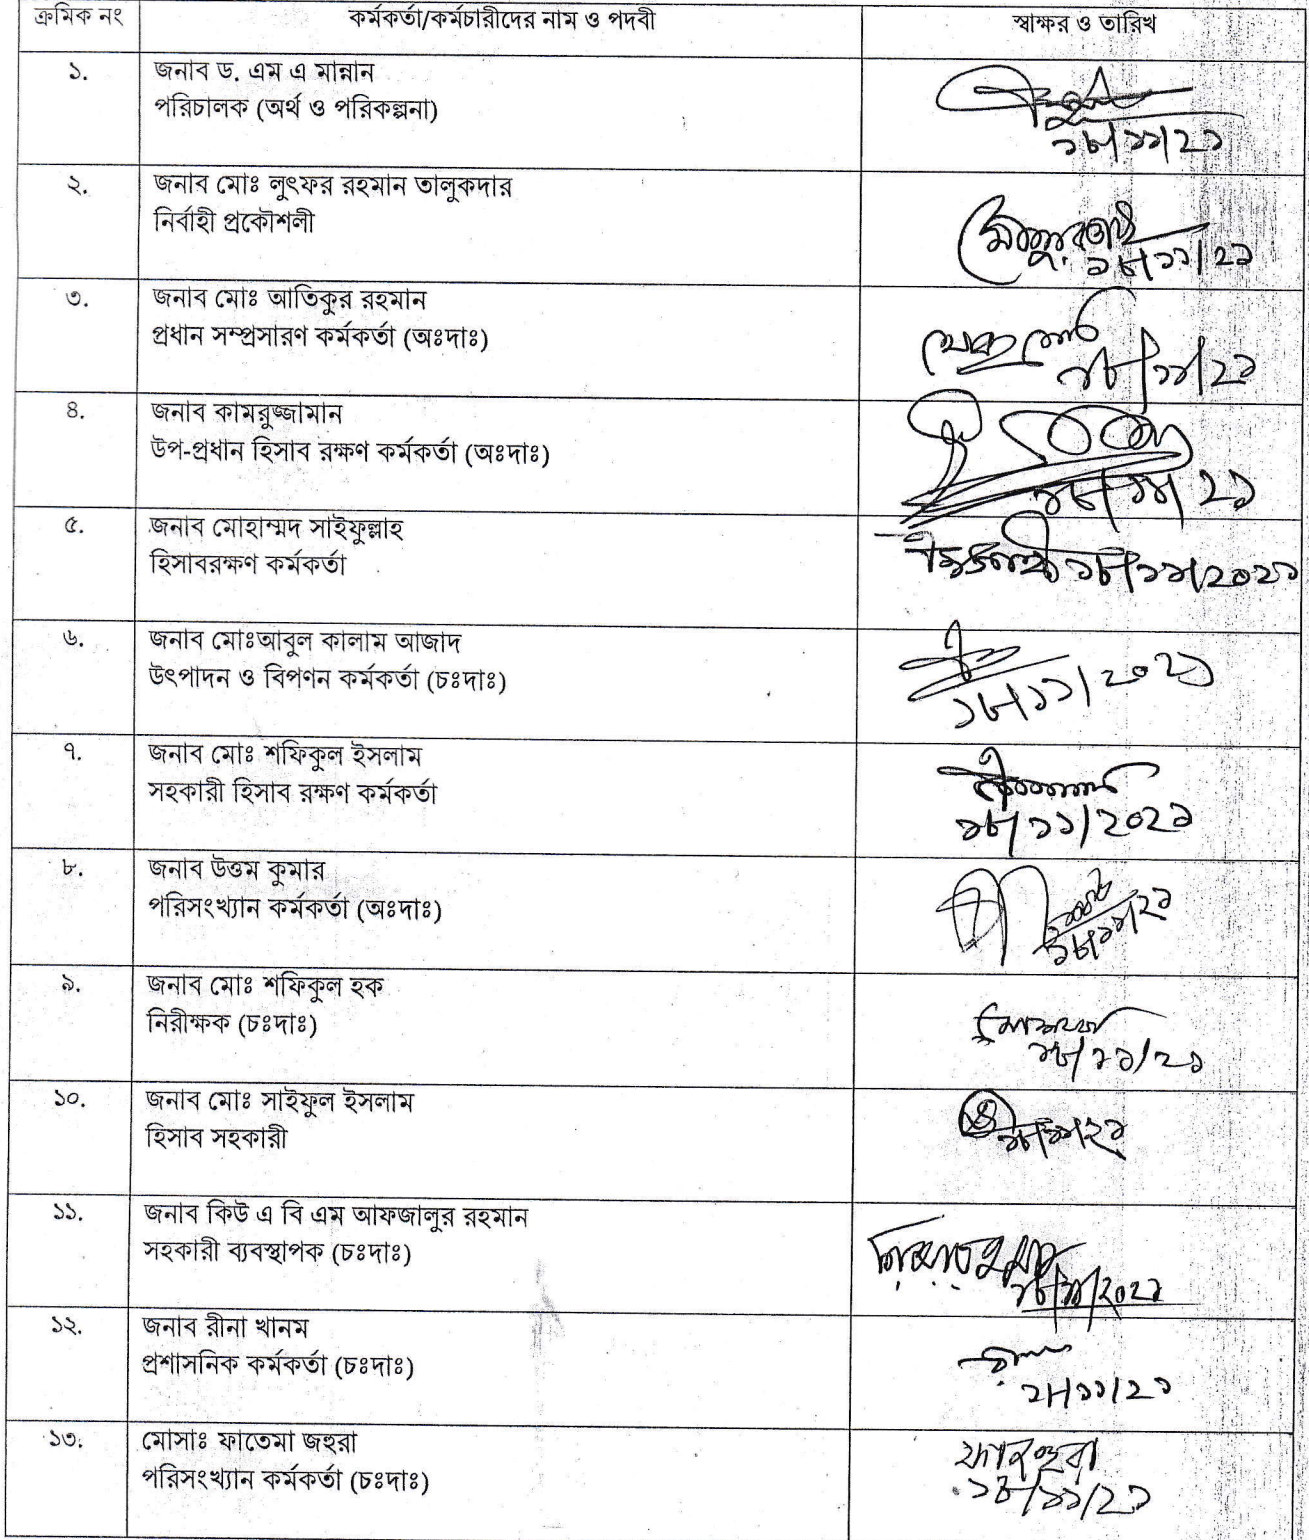 ক্রমিক নং কর্মকর্তা/কর্মচারীদের নাম ও পদবী স্বাক্ষর ও তারিখ
১. জনাব ড. এম এ মান্নান
পরিচালক (অর্থ ও পরিকল্পনা)
১৮/১১/২১
২. জনাব মোঃ লুৎফর রহমান তালুকদার
নির্বাহী প্রকৌশলী
১৮/১১/২১
৩. জনাব মোঃ আতিকুর রহমান
প্রধান সম্প্রসারণ কর্মকর্তা (অঃদাঃ)
১৮/১১/২১
৪. জনাব কামরুজ্জামান
উপ-প্রধান হিসাব রক্ষণ কর্মকর্তা (অঃদাঃ)
১৮/১১/২১
৫. জনাব মোহাম্মদ সাইফুল্লাহ
হিসাবরক্ষণ কর্মকর্তা
১৮/১১/২০২১
৬. জনাব মোঃআবুল কালাম আজাদ
উৎপাদন ও বিপণন কর্মকর্তা (চঃদাঃ)
১৮/১১/২০২১
৭. জনাব মোঃ শফিকুল ইসলাম
সহকারী হিসাব রক্ষণ কর্মকর্তা
১৮/১১/২০২১
৮. জনাব উত্তম কুমার
পরিসংখ্যান কর্মকর্তা (অঃদাঃ)
১৮/১১/২১
৯. জনাব মোঃ শফিকুল হক
নিরীক্ষক (চঃদাঃ)
১৮/১১/২১
১০. জনাব মোঃ সাইফুল ইসলাম
হিসাব সহকারী
১৮/১১/২১
১১. জনাব কিউ এ বি এম আফজালুর রহমান
সহকারী ব্যবস্থাপক (চঃদাঃ)
১৮/১১/২০২১
১২. জনাব রীনা খানম
প্রশাসনিক কর্মকর্তা (চঃদাঃ)
১৮/১১/২১
১৩. মোসাঃ ফাতেমা জহুরা
পরিসংখ্যান কর্মকর্তা (চঃদাঃ)
১৮/১১/২১